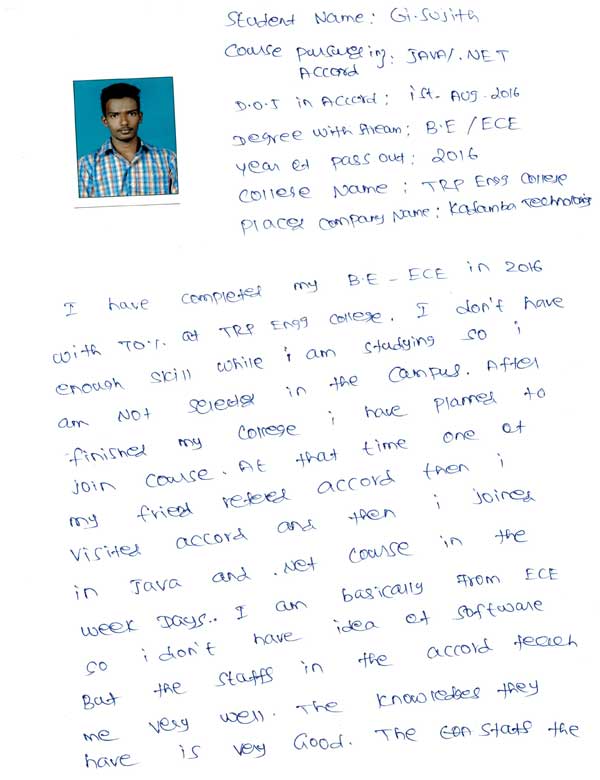 Student Name: G. Sujith
Course pursuring: JAVA/.NET
Accord
D.O.J in Accord: 1st- AUG-2016
Degree with Aream: B.E / ECE
year of pass out: 2016
College Name: TRP Engg College
Placed Company Name: Kadamba Technologies
I have completed my B.E - ECE in 2016
with 70% at TRP Engg college. I don't have
enough skill while i am studying so i
am not selected in the campus. After
finished my college i have planned to
join course. At that time one of
my fried refered accord then i
visited accord and then i joined
in Java and .Net course in the
week Days.. I am basically from ECE
so i don't have idea of software
But the staffs in the accord teach
me very well. The knowledges they
have is very Good. The staffs the